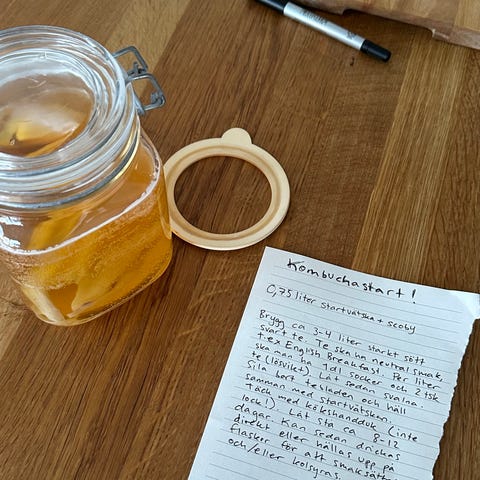 Kombuchastart!
0,75 liter startvätska + scoby
Brygg ca 3-4 liter starkt sött
svart te. Te ska ha neutral smak,
t.ex English Breakfast. Per liter
ska man ha 1dl socker och 2 tsk
te (lösvikt). Låt sedan svalna.
Sila bort tebladen och häll
samman med startvätskan.
Täck med kökshandduk (inte
lock!). Låt stå ca 8-12
dagar. Kan sedan drickas
direkt eller hällas upp på
flaskor för att smaksätt
och/eller kolsyras.